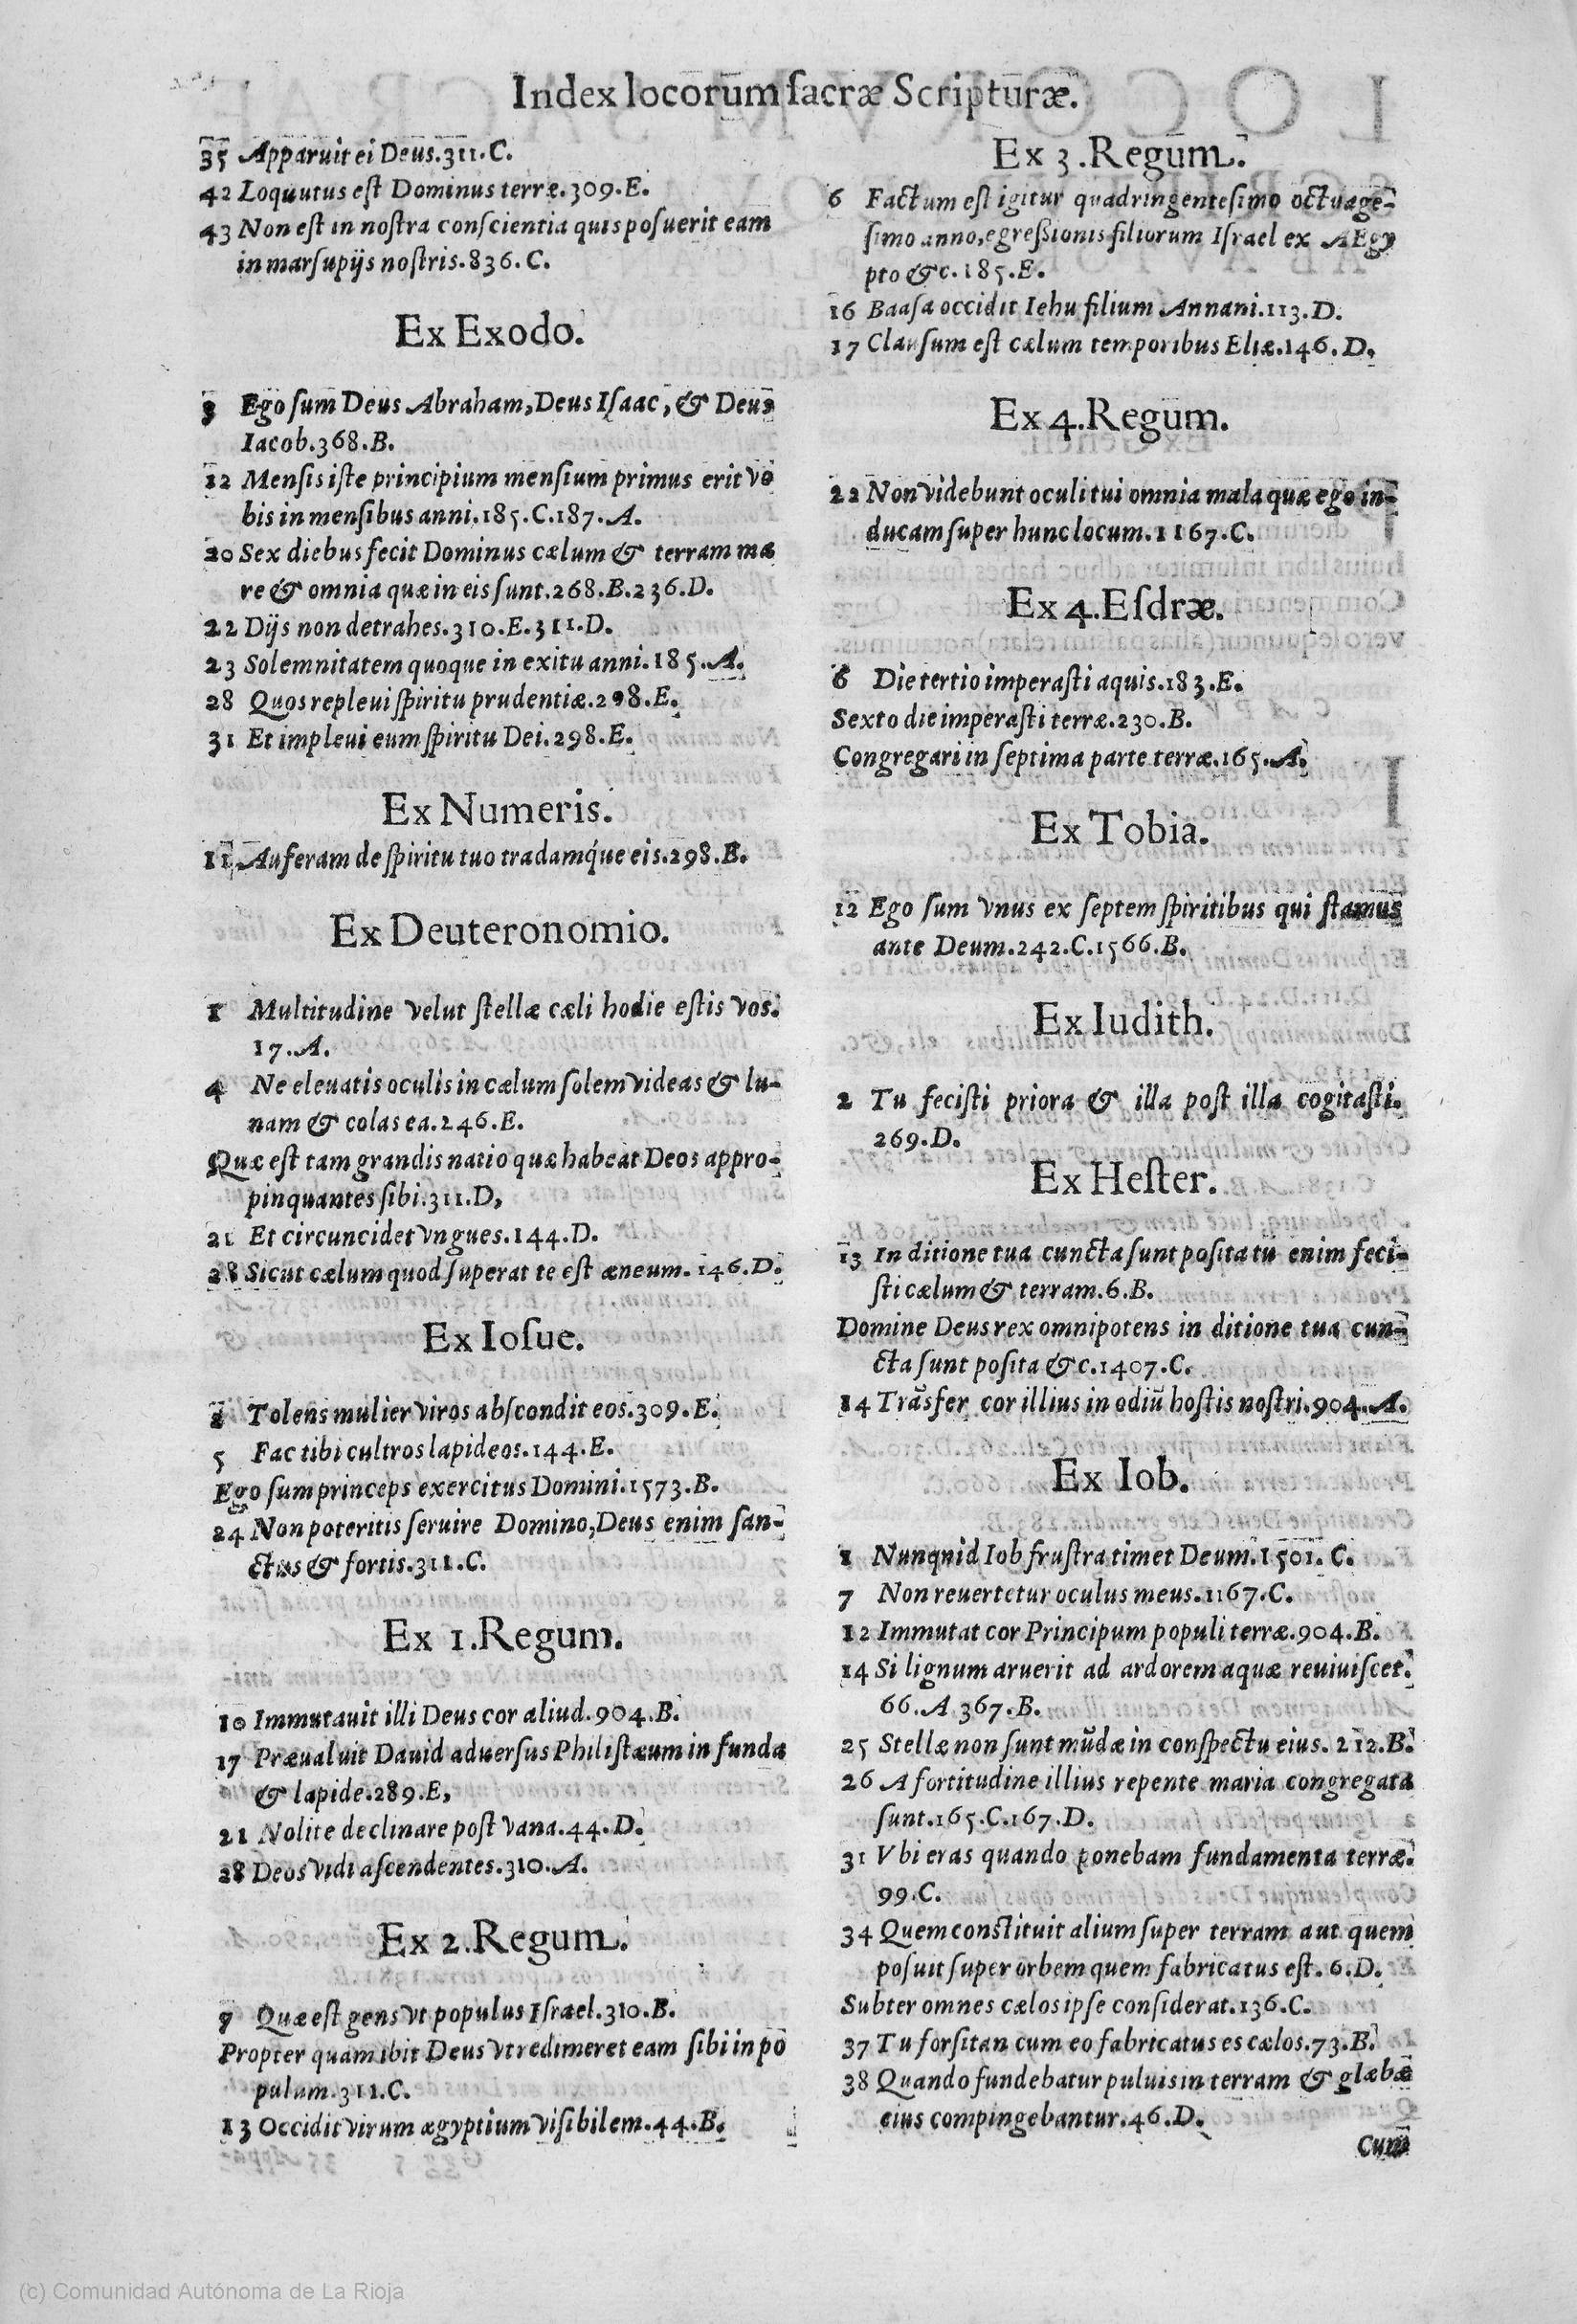 Index locorum sacræ Scripturæ.
35 Apparuit ei Deus.311.C.
42 Loquutus est Dominus terræ.309.E.
43 Non est in nostra conscientia quis posuerit eam
in marsupijs nostris.836.C.
Ex Exodo.
3 Ego sum Deus Abraham, Deus Isaac, & Deus
Iacob.368.B.
12 Mensis iste principium mensium primus erit vo
bis in mensibus anni.185.C.187.A.
20 Sex diebus fecit Dominus cælum & terram ma
re & omnia quæ in eis sunt.268.B.236.D.
22 Dijs non detrahes.310.E.311.D.
23 Solemnitatem quoque in exitu anni.185.A.
28 Quos repleui spiritu prudentiæ.298.E.
31 Et impleui eum spiritu Dei.298.E.
Ex Numeris.
11 Auferam de spiritu tuo tradamq́ue eis.298.E.
Ex Deuteronomio.
1 Multitudine velut stellæ cæli hodie estis vos.
17.A.
4 Ne eleuatis oculis in cælum solem videas & lu-
nam & colas ea.246.E.
Quæ est tam grandis natio quæ habeat Deos appro-
pinquantes sibi.311.D,
21 Et circuncidet vngues.144.D.
28 Sicut cælum quod superat te est æneum.146.D.
Ex Iosue.
2 Tolens mulier viros abscondit eos.309.E.
5 Fac tibi cultros lapideos.144.E.
Ego sum princeps exercitus Domini.1573.B.
24 Non poteritis seruire Domino, Deus enim san-
ctus & fortis.311.C.
Ex 1.Regum.
10 Immutauit illi Deus cor aliud.904.B.
17 Præualuit Dauid aduersus Philistæum in funda
& lapide.289.E,
21 Nolite declinare post vana.44.D.
28 Deos vidi ascendentes.310.A.
Ex 2.Regum.
7 Quæ est gens vt populus Israel.310.B.
Propter quam ibit Deus vt redimeret eam sibi in po
pulum.311.C.
13 Occidit virum ægyptium visibilem.44.B.
Ex 3.Regum.
6 Factum est igitur quadringentesimo octuage-
simo anno, egressionis filiorum Israel ex AEgy
pto &c.185.E.
16 Baasa occidit Iehu filium Annani.113.D.
17 Clausum est cælum temporibus Eliæ.146.D.
Ex 4.Regum.
22 Non videbunt oculi tui omnia mala quæ ego in-
ducam super hunc locum.1167.C.
Ex 4.Esdræ.
6 Die tertio imperasti aquis.183.E.
Sexto die imperasti terræ.230.B.
Congregari in septima parte terræ.165.A.
Ex Tobia.
12 Ego sum vnus ex septem spiritibus qui stamus
ante Deum.242.C.1566.B.
Ex Iudith.
2 Tu fecisti priora & illa post illa cogitasti.
269.D.
Ex Hester.
13 In ditione tua cuncta sunt posita tu enim feci-
sti cælum & terram.6.B.
Domine Deus rex omnipotens in ditione tua cun-
cta sunt posita &c.1407.C.
14 Trãsfer cor illius in odiũ hostis nostri.904.A.
Ex Iob.
1 Nunquid Iob frustra timet Deum.1501.C.
7 Non reuertetur oculus meus.1167.C.
12 Immutat cor Principum populi terræ.904.B.
14 Si lignum aruerit ad ardorem aquæ reuiuiscet.
66.A 367.B.
25 Stellæ non sunt mũdæ in conspectu eius.212.B.
26 A fortitudine illius repente maria congregata
sunt.165.C.167.D.
31 Vbi eras quando ponebam fundamenta terræ.
99.C.
34 Quem constituit alium super terram aut quem
posuit super orbem quem fabricatus est.6.D.
Subter omnes cælos ipse considerat.136.C.
37 Tu forsitan cum eo fabricatus es cælos.73.B.
38 Quando fundebatur puluis in terram & glæbæ
eius compingebantur.46.D.
Cum
(c) Comunidad Autónoma de La Rioja